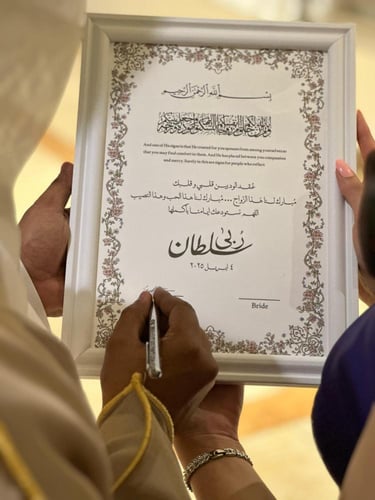 بسم الله الرحمن الرحيم
And one of His signs is that He created for you spouses from among yourselves so
that you may find comfort in them. And He has placed between you compassion
and mercy. Surely in this are signs for people who reflect
عُقد لودين قلبي وقلبك
مبارك لنا هذا الزواج ..ومبارك لنا هذا الحب وهذا النصيب
اللهم نستودعك ايامنا بأكملها
رُبى
سلطان
٤ ابريل ٢٠٢٥
Bride